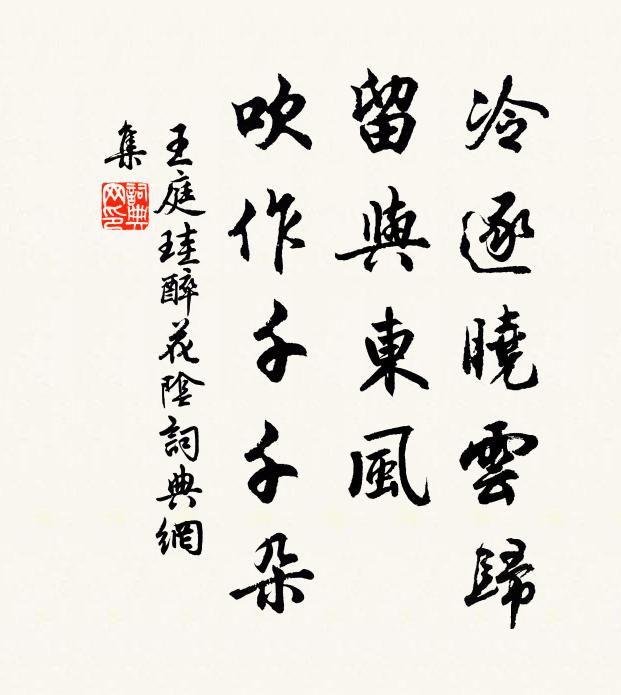 冷逐曉雲歸
留與東風
吹作千千朵
王庭珪醉花陰詞典網
集
詞典網印